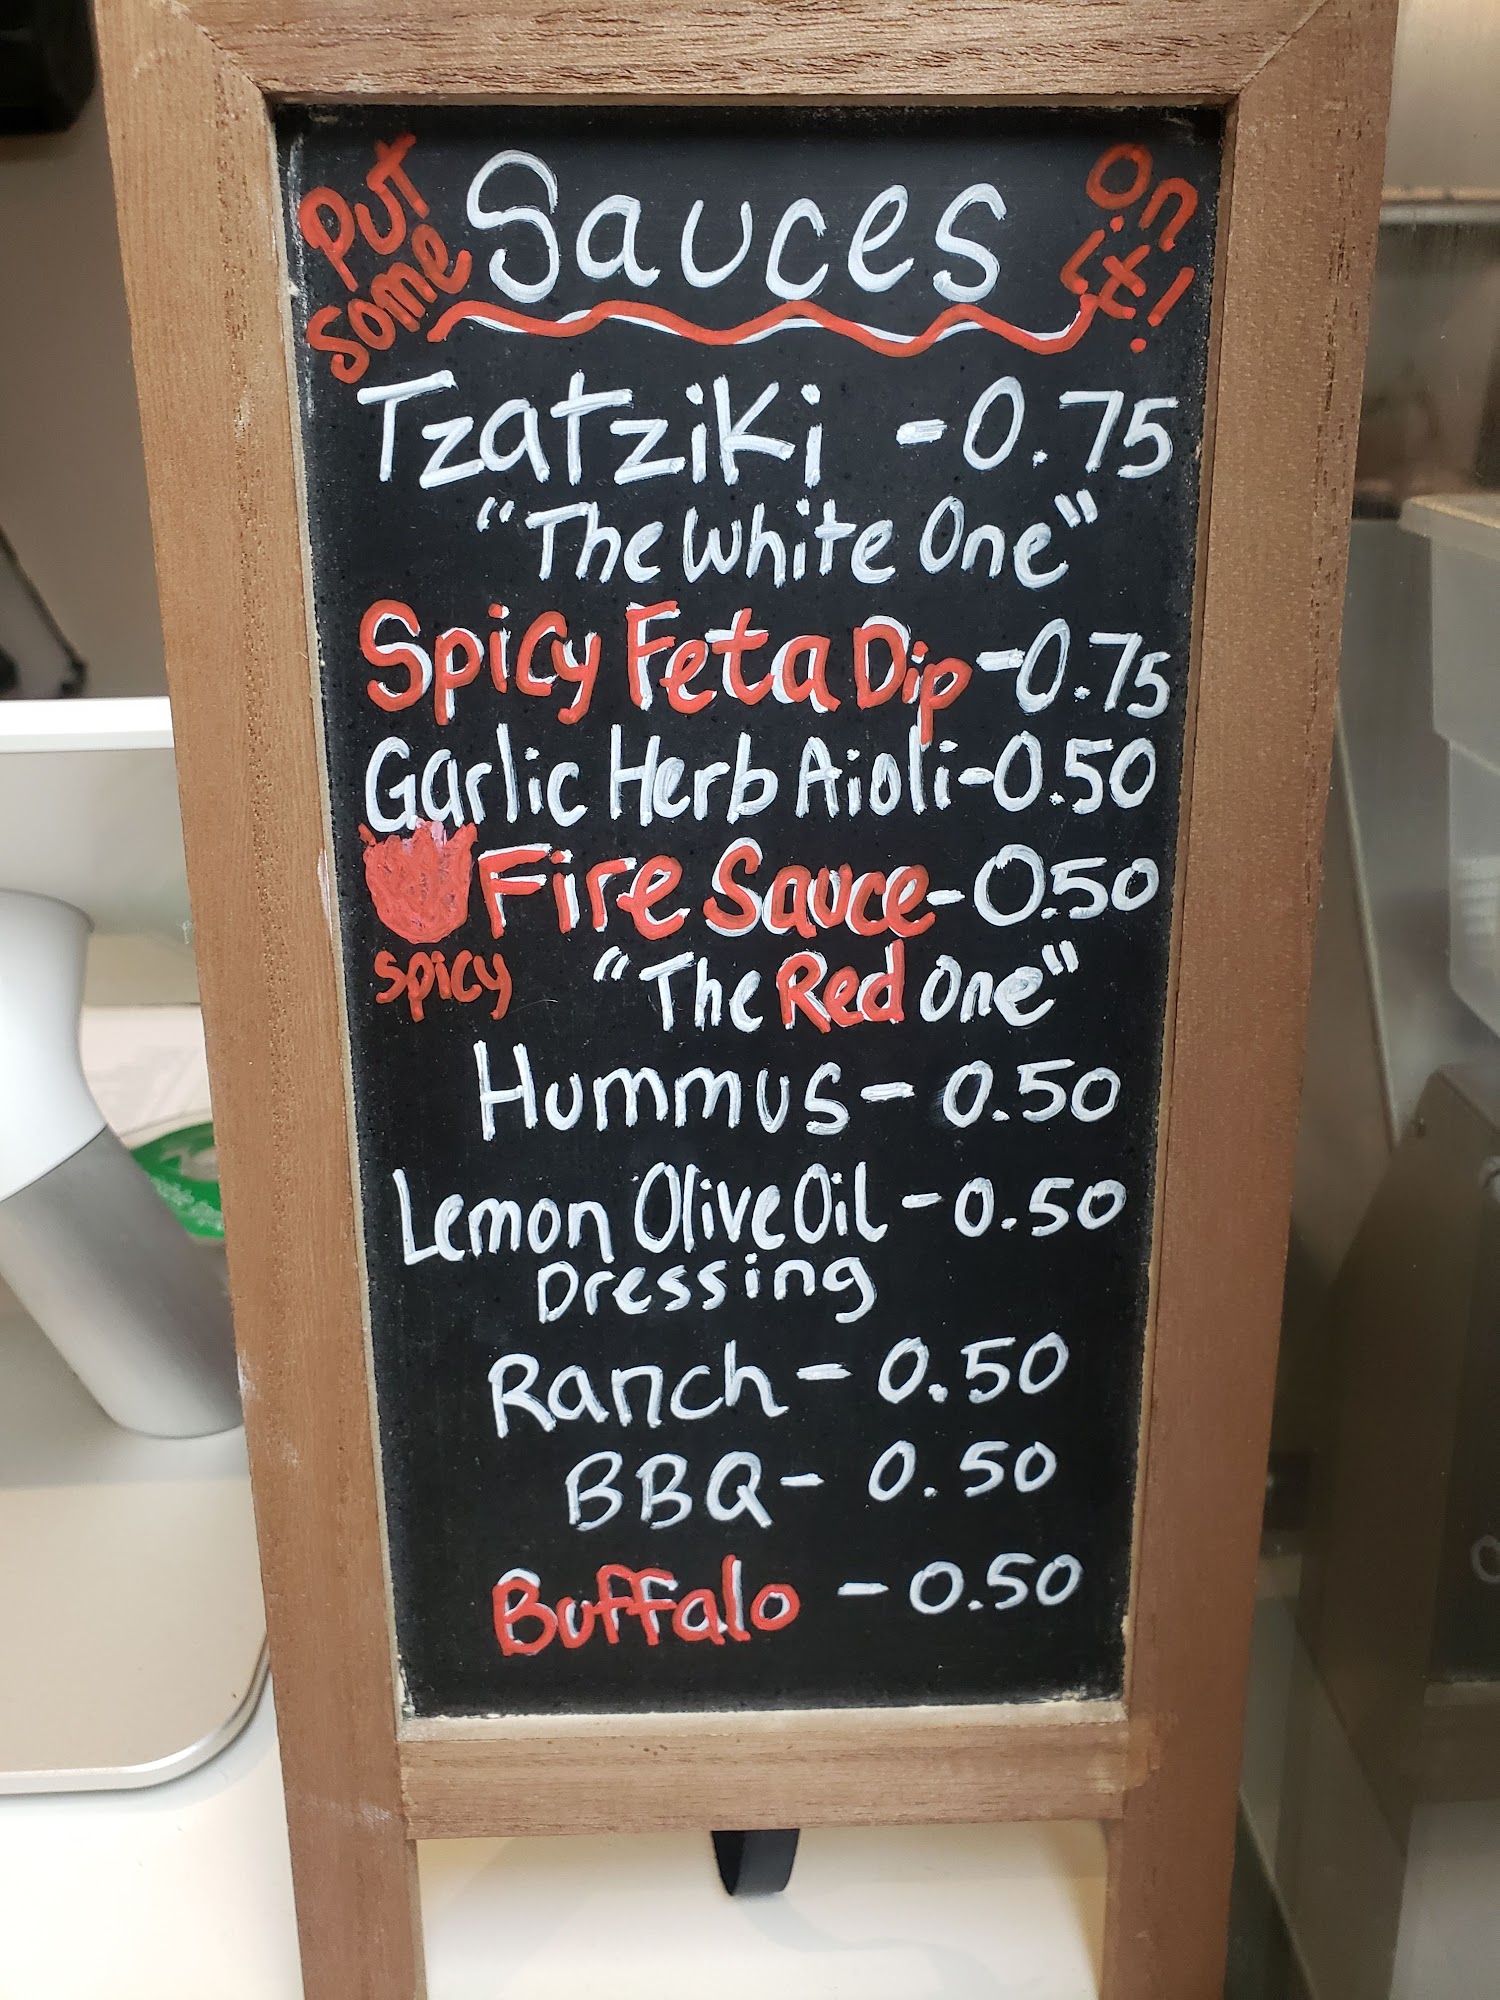 Put some
Sauces
on it!
Tzatziki - 0.75
"The White One"
Spicy Feta Dip - 0.75
Garlic Herb Aioli - 0.50
Fire Sauce - 0.50
spicy "The Red One"
Hummus - 0.50
Lemon Olive Oil - 0.50
Dressing
Ranch - 0.50
BBQ - 0.50
Buffalo - 0.50